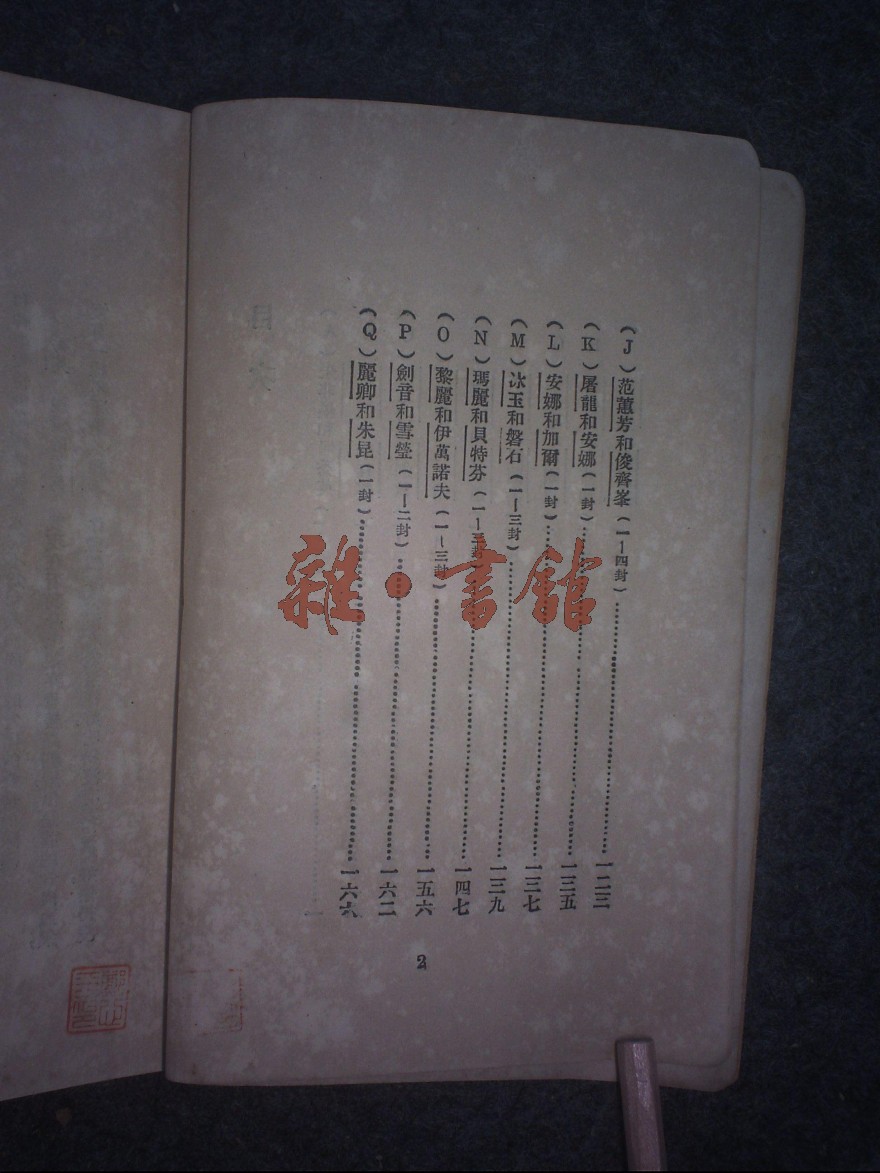 (J) 范蕙芳和俊齊峯(一—四封)……一二三
(K) 屠龍和安娜(一封)……一三五
(L) 安娜和加爾(一封)……一三七
(M) 冰玉和磐石(一—三封)……一三九
(N) 瑪麗和貝特芬(一—三封)……一四七
(O) 黎麗和伊萬諾夫(一—三封)……一五六
(P) 劍音和雪瑩(一—二封)……一六二
(Q) 麗卿和朱昆(一封)……一六六
2
雜·書館
目